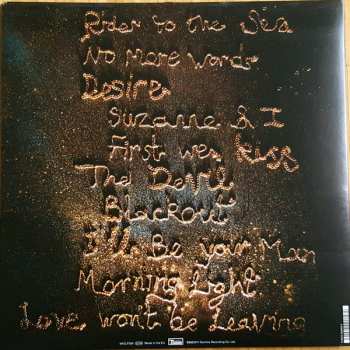 Rider to the Sea
No More words
Desire
Suzanne & I
First we kiss
The Devil
Blackout
I'll Be your Man
Morning Light
Love won't be Leaving